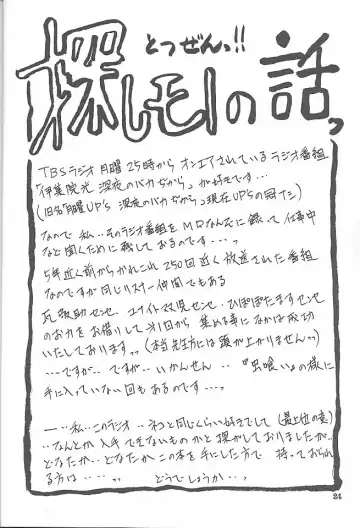 とつぜんっ!!
探しモノの話っ
TBSラジオ 月曜25時から オンエアされているラジオ番組
「伊集院光 深夜のバカぢから」が好きです…
なので 私‥そのラジオ番組をMDなんぞに録って仕事中
など聞くために残しておるのです…
5年近く前からかれこれ250回近く放送された番組
なのですが同じリスナー仲間でもある
のお力をお借りして第1回から 集める事になかば成功
いたしております (本当先生方には頭が上がりません)
…ですが‥ですが‥いかんせん‥『虫喰い』の様に
手に入っていない回もあるのです…
―‥私‥このラジオ‥ネコと同じくらい好きでして (最上位の意)
‥なんとか入手できないものかと探しておりましたか‥
どなたか‥どなたかこの本を手にした方で 持っておられ
る方は…… どうでしょうか…
24